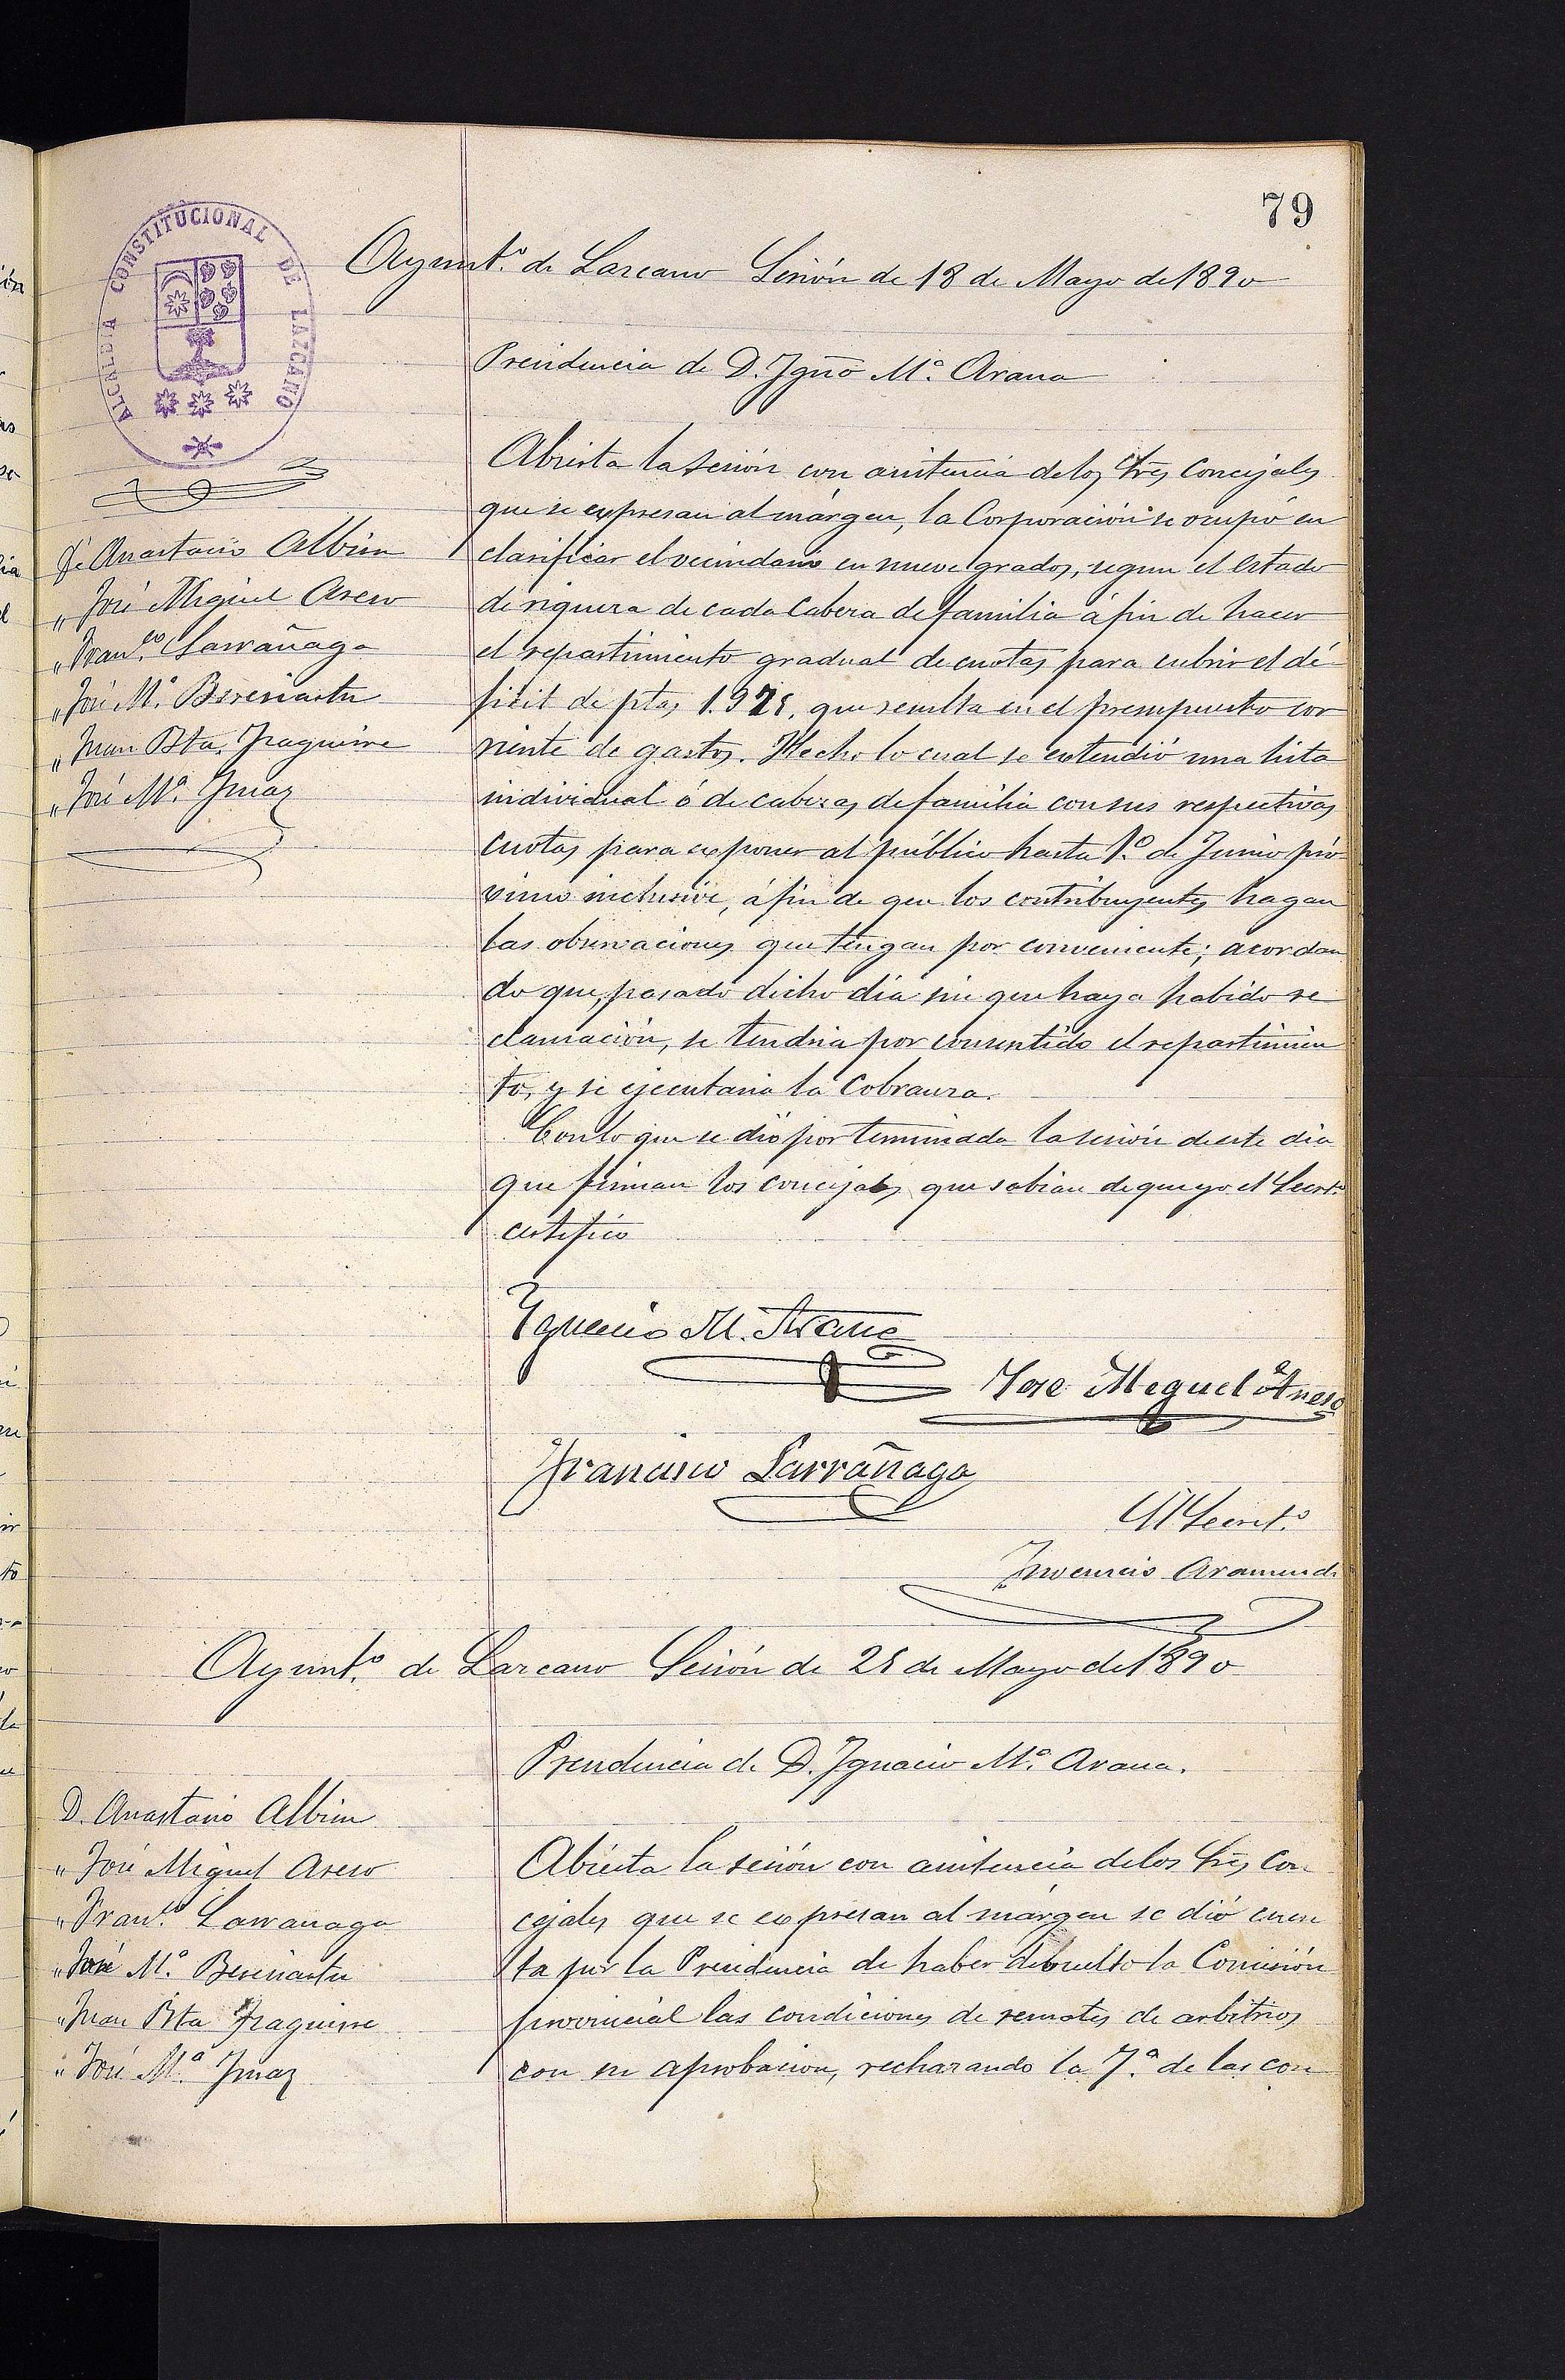 79
ALCALDIA CONSTITUCIONAL DE LAZCANO
Ayunt.º de Lazcano Sesión de 18 de Mayo de 1890
Presidencia de D. Ygnº Mª. Arana
D. Anastacio Albisu
" José Miguel Aseso
" Fran.co Larrañaga
" José Mª. Beresiartu
" Juan Bta. Yraguirre
" José Mª. Ymaz
Abierta la sesión con asistencia de los Sres Concejales
que se expresan al márgen, la Corporación se ocupó en
clasificar el vecindario en nueve grados, segun el estado
de riqueza de cada Cabeza de familia á fin de hacer
el repartimiento gradual de cuotas para cubrir el dé-
ficit de ptas 1.925, que resulta en el presupuesto cor
riente de gastos. Hecho lo cual se extendió una lista
individual ó de cabezas de familia con sus respectivas
cuotas para exponer al público hasta 1º. de Junio pró
ximo inclusive, á fin de que los contribuyentes hagan
las observaciones que tengan por conveniente; acordan
do que, pasado dicho dia sin que haya habido re
clamación, se tendria por consentido el repartimien
to, y se ejecutaria la Cobranza.
Con lo que se dió por terminada la sesión de este dia
que firman los concejales que sabian de que yo el Secret.º
certifico
Ygnacio M. Arana
Jose Miguel Aseso
Francisco Larrañaga
El Secret.º
Ynocencio Aramendi
Ayunt.º de Lazcano Sesión de 25 de Mayo de 1890
Presidencia de D. Ygnacio Mª. Arana.
D. Anastasio Albisu
" José Miguel Aseso
" Fran.co Larranaga
" José Mª. Beresiartu
" Juan Bta Yraguirre
" José Mª. Ymaz
Abierta la sesión con asistencia de los Sres Con-
cejales que se expresan al márgen se dió cuen
ta por la Presidencia de haber debuelto la Comisión
provincial las condiciones de remates de arbitrios
con su aprobacion, rechazando la 7.ª de las con